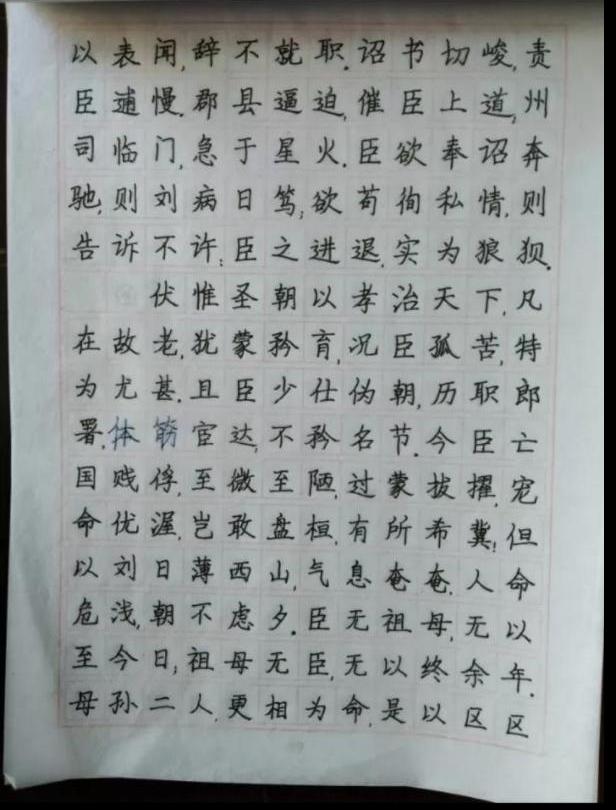 以表闻,辞不就职.诏书切峻,责
臣逋慢.郡县逼迫,催臣上道,州
司临门,急于星火.臣欲奉诏奔
驰,则刘病日笃;欲苟徇私情,则
告诉不许;臣之进退,实为狼狈.
伏惟圣朝以孝治天下,凡
在故老,犹蒙矜育,况臣孤苦,特
为尤甚.且臣少仕伪朝,历职郎
署.体筋宦达,不矜名节.今臣亡
国贱俘,至微至陋,过蒙拔擢,宠
命优渥,岂敢盘桓,有所希冀!但
以刘日薄西山,气息奄奄,人命
危浅,朝不虑夕.臣无祖母,无以
至今日;祖母无臣,无以终余年.
母孙二人,更相为命,是以区区